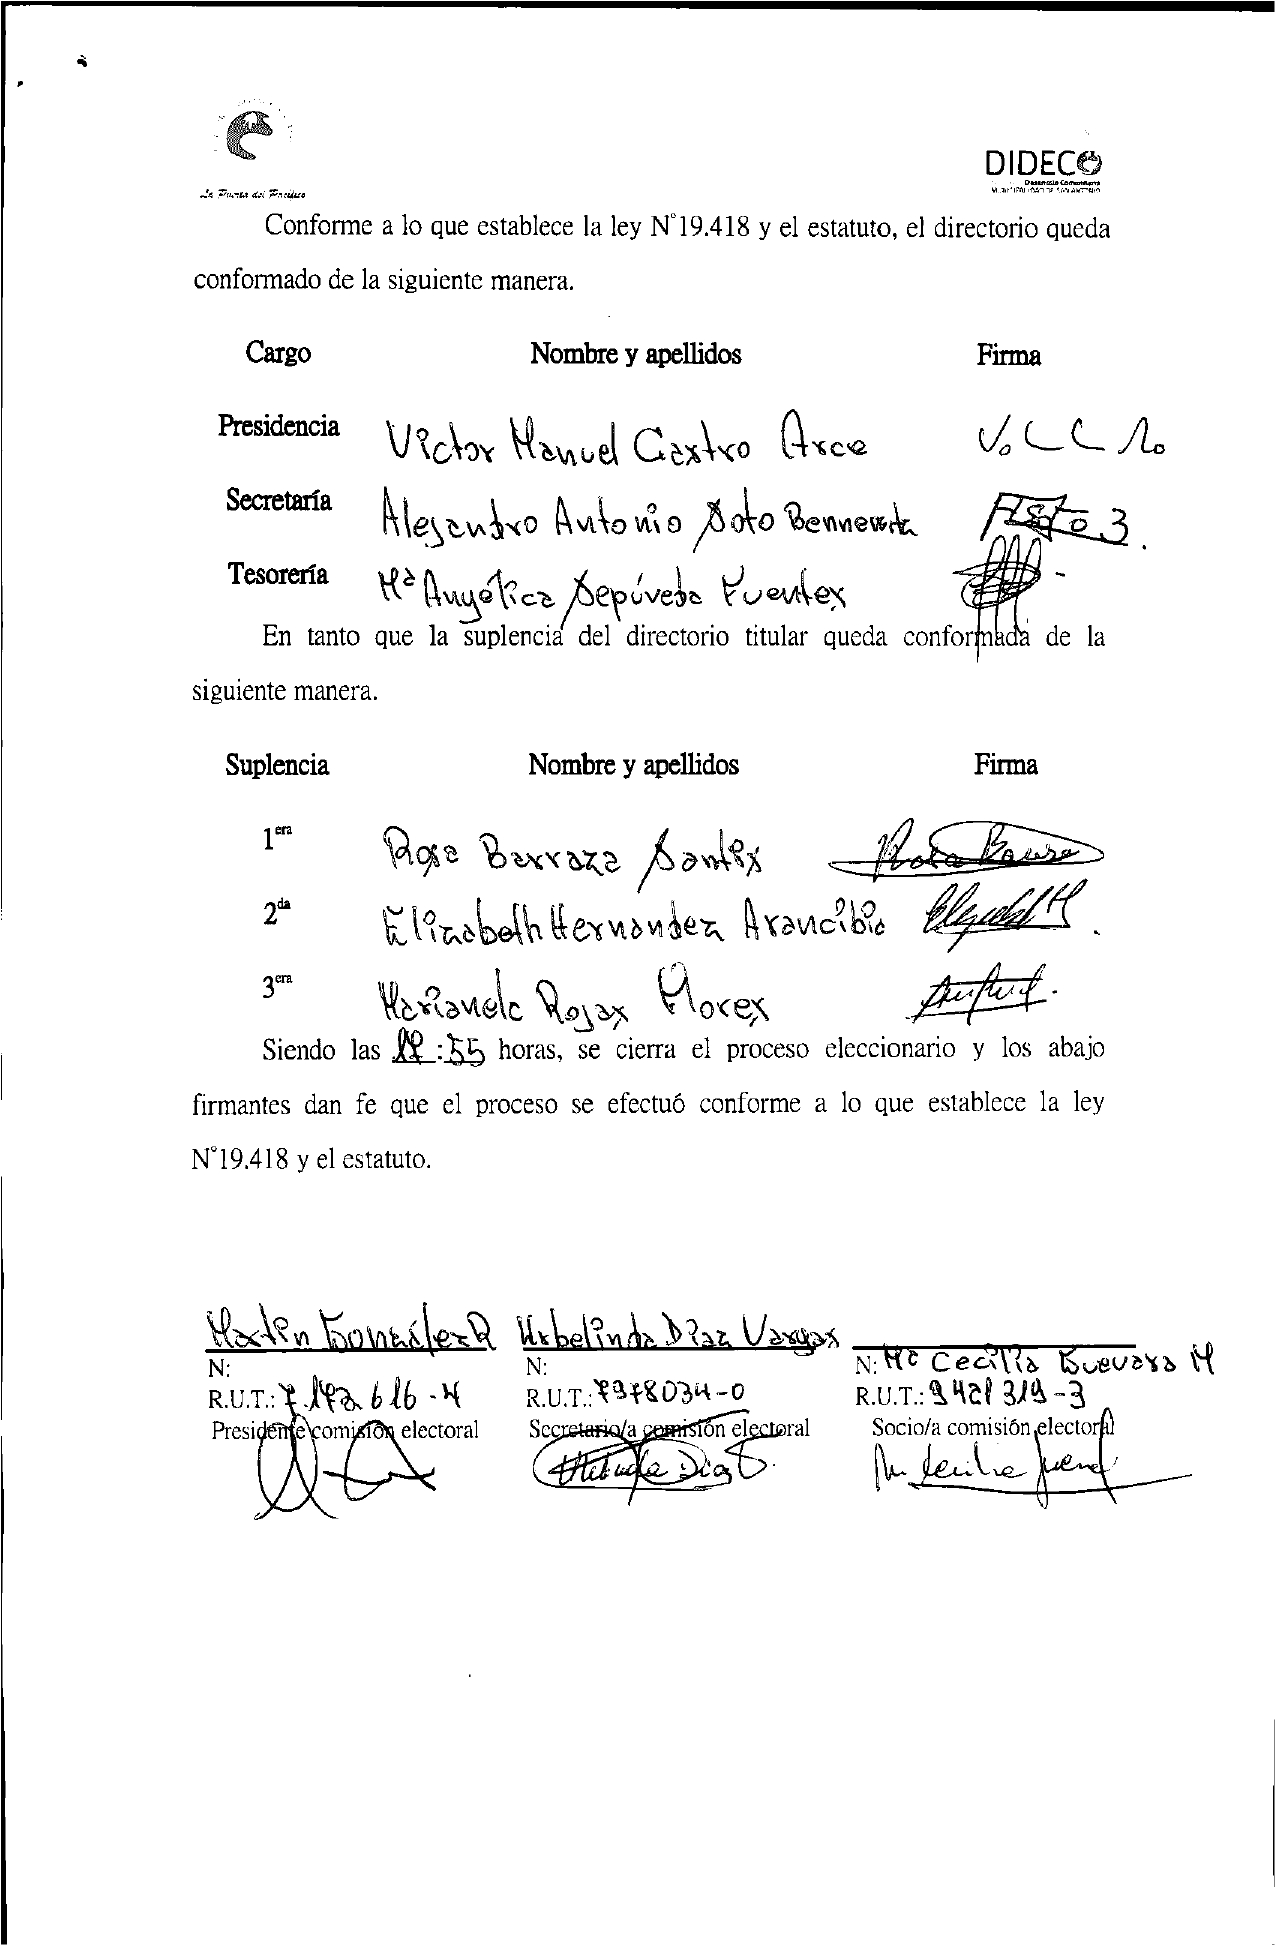 La Puerta del Pacífico
DIDECO
Desarrollo Comunitario
MUNICIPALIDAD DE SAN ANTONIO
Conforme a lo que establece la ley N°19.418 y el estatuto, el directorio queda
conformado de la siguiente manera.
Cargo Nombre y apellidos Firma
Presidencia Victor Manuel Castro Arce
Secretaría Alejandro Antonio Soto
Tesorería Mª Angélica Sepúveda Fuentes
En tanto que la suplencia del directorio titular queda conformada de la
siguiente manera.
Suplencia Nombre y apellidos Firma
1era Rosa Barraza Santis
2da Elizabeth Hernandez Arancibia
3era Marianela Rojas Flores
Siendo las :55 horas, se cierra el proceso eleccionario y los abajo
firmantes dan fe que el proceso se efectuó conforme a lo que establece la ley
N°19.418 y el estatuto.
Martin González R Urbelinda Diaz Vargas
N: N: N: Mª Cecilia Guevara M
R.U.T.: R.U.T.: 7978034-0 R.U.T.: 9421319-3
Presidente comisión electoral Secretario/a comisión electoral Socio/a comisión electoral